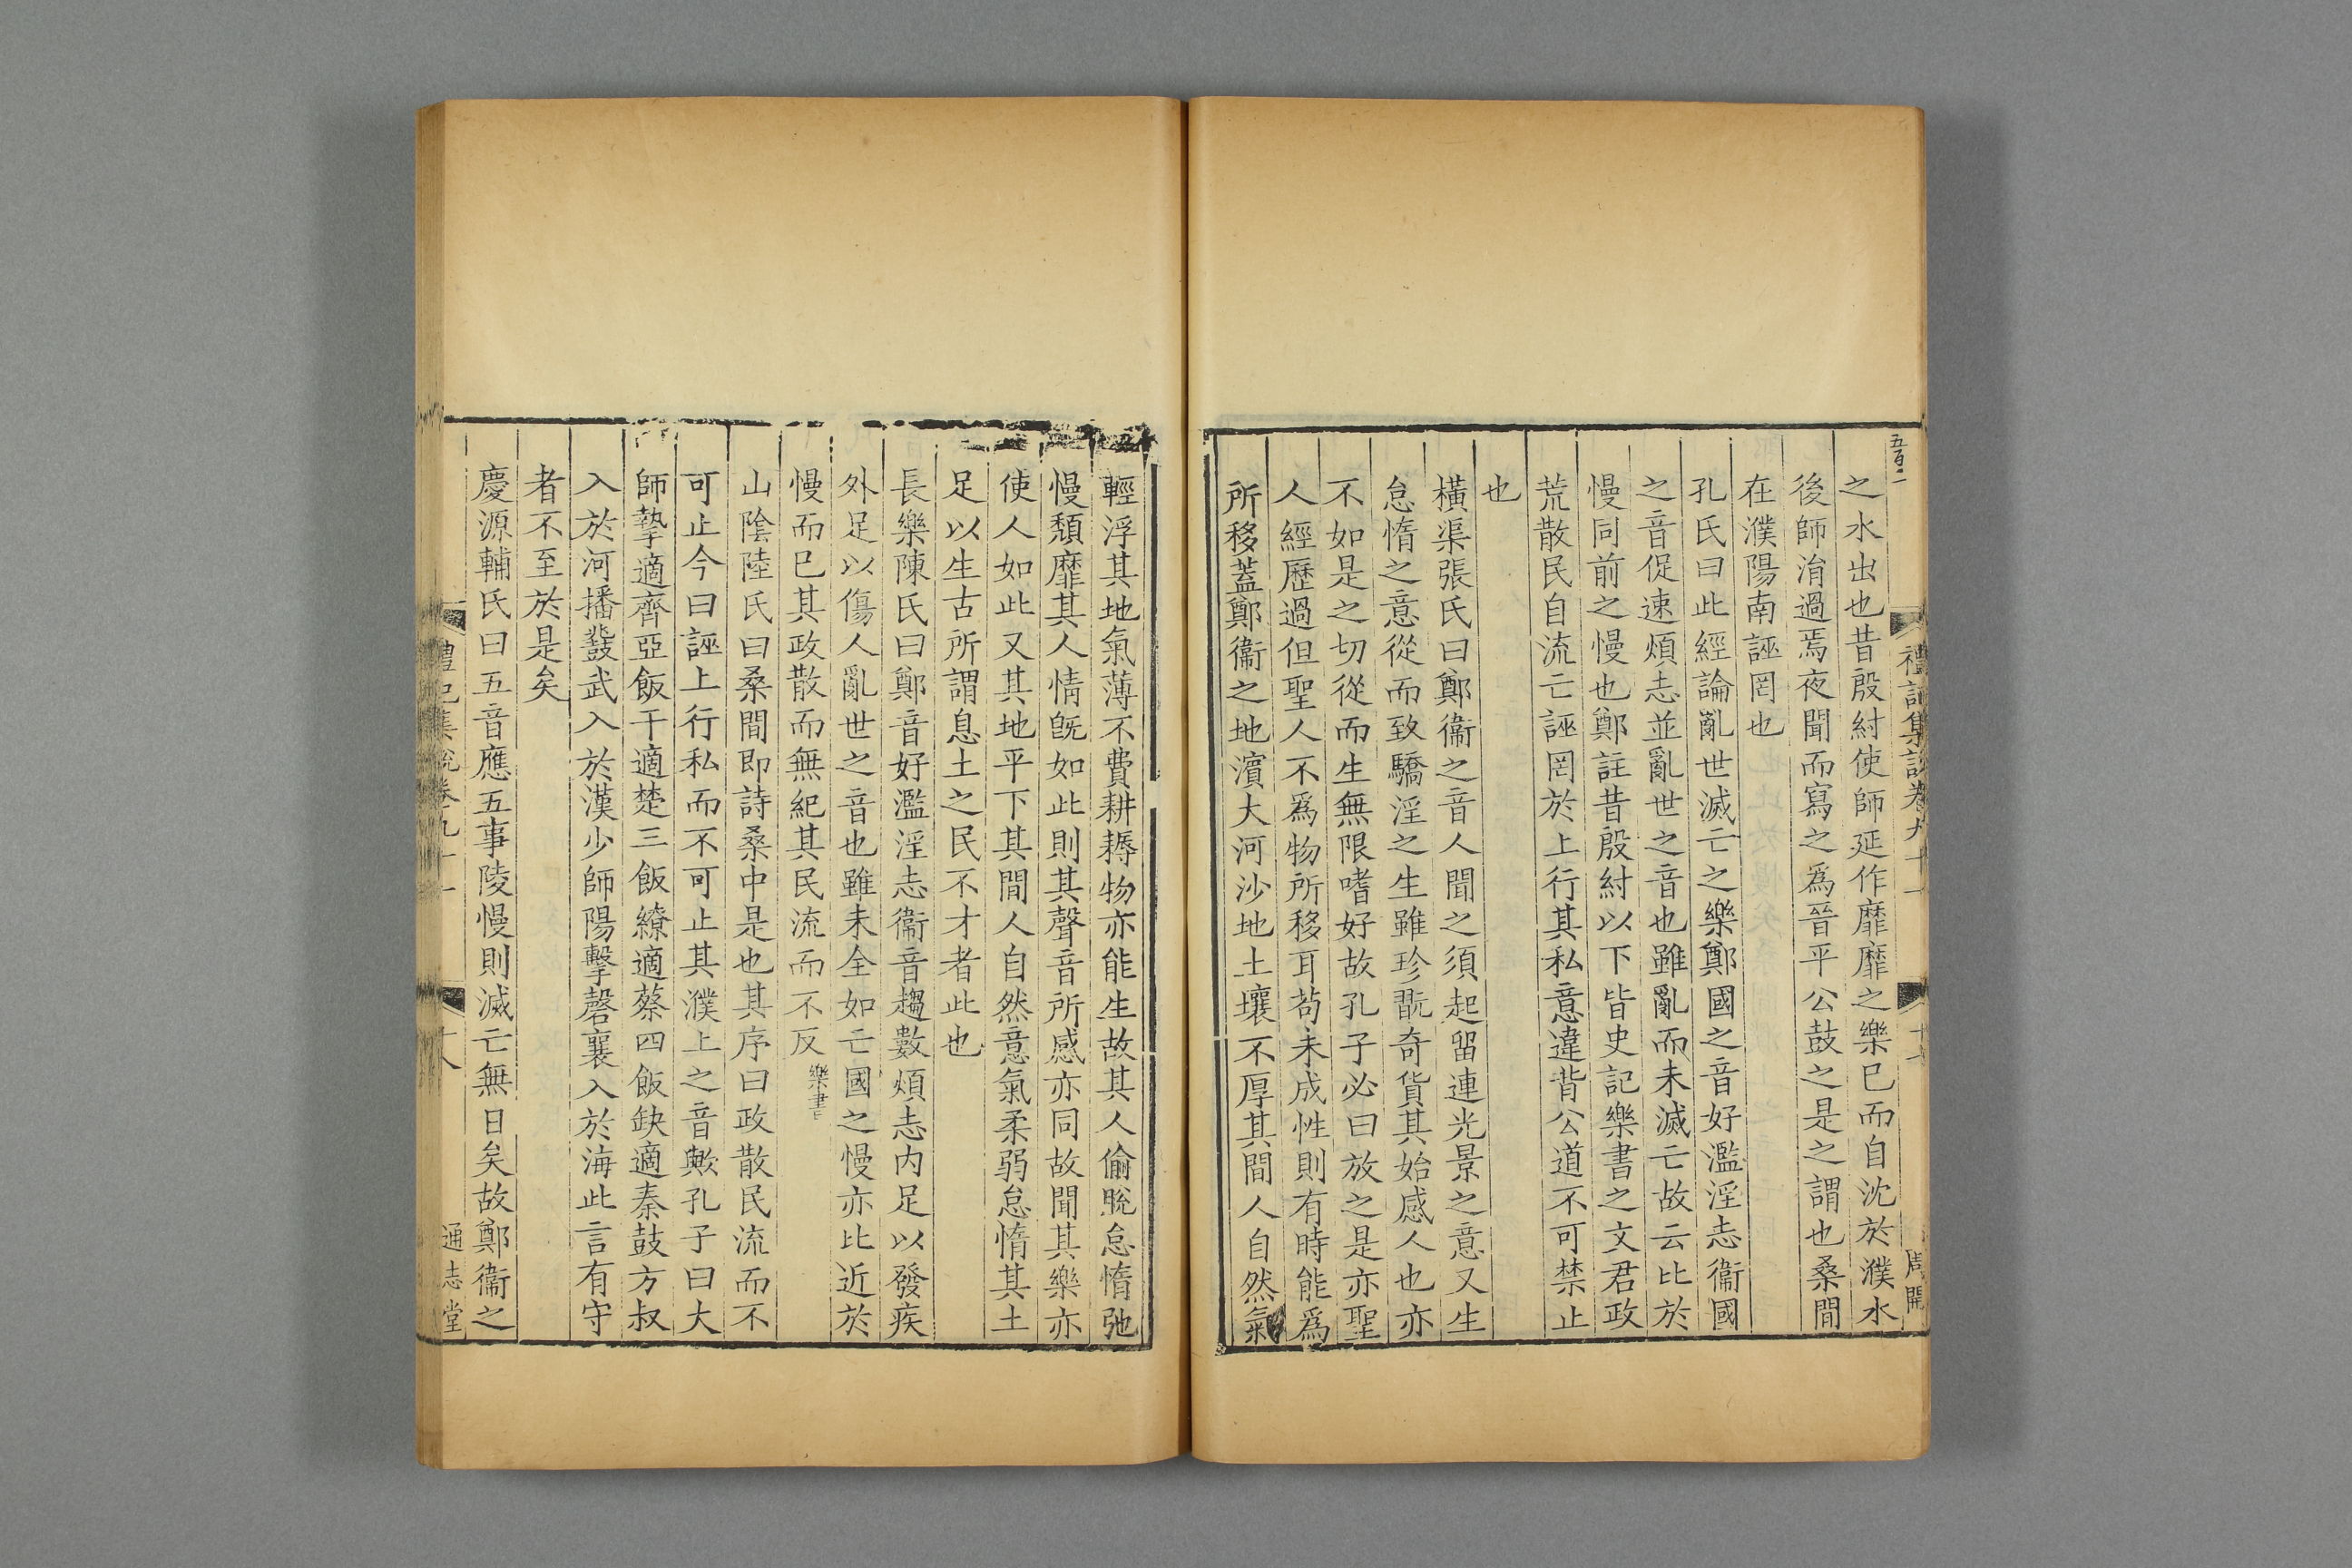 五百二
禮記集說卷九十一
十七
周開
之水出也昔殷紂使師延作靡靡之樂已而自沈於濮水
後師涓過焉夜聞而寫之爲晉平公鼓之是之謂也桑間
在濮陽南誣罔也
孔氏曰此經論亂世滅亡之樂鄭國之音好濫淫志衞國
之音促速煩志並亂世之音也雖亂而未滅亡故云比於
慢同前之慢也鄭註昔殷紂以下皆史記樂書之文君政
荒散民自流亡誣罔於上行其私意違背公道不可禁止
也
橫渠張氏曰鄭衞之音人聞之須起留連光景之意又生
怠惰之意從而致驕淫之生雖珍翫奇貨其始感人也亦
不如是之切從而生無限嗜好故孔子必曰放之是亦聖
人經歷過但聖人不爲物所移耳苟未成性則有時能爲
所移蓋鄭衞之地濵大河沙地土壤不厚其間人自然氣
輕浮其地氣薄不費耕耨物亦能生故其人偷脫怠惰弛
慢頹靡其人情旣如此則其聲音所感亦同故聞其樂亦
使人如此又其地平下其間人自然意氣柔弱怠惰其土
足以生古所謂息土之民不才者此也
長樂陳氏曰鄭音好濫淫志衞音趨數煩志内足以發疾
外足以傷人亂世之音也雖未全如亡國之慢亦比近於
慢而已其政散而無紀其民流而不反樂書
山陰陸氏曰桑間即詩桑中是也其序曰政散民流而不
可止今曰誣上行私而不可止其濮上之音歟孔子曰大
師摯適齊亞飯干適楚三飯繚適蔡四飯缺適秦鼓方叔
入於河播鼗武入於漢少師陽擊磬襄入於海此言有守
者不至於是矣
慶源輔氏曰五音應五事陵慢則滅亡無日矣故鄭衞之
禮記集說卷九十一
十八
通志堂